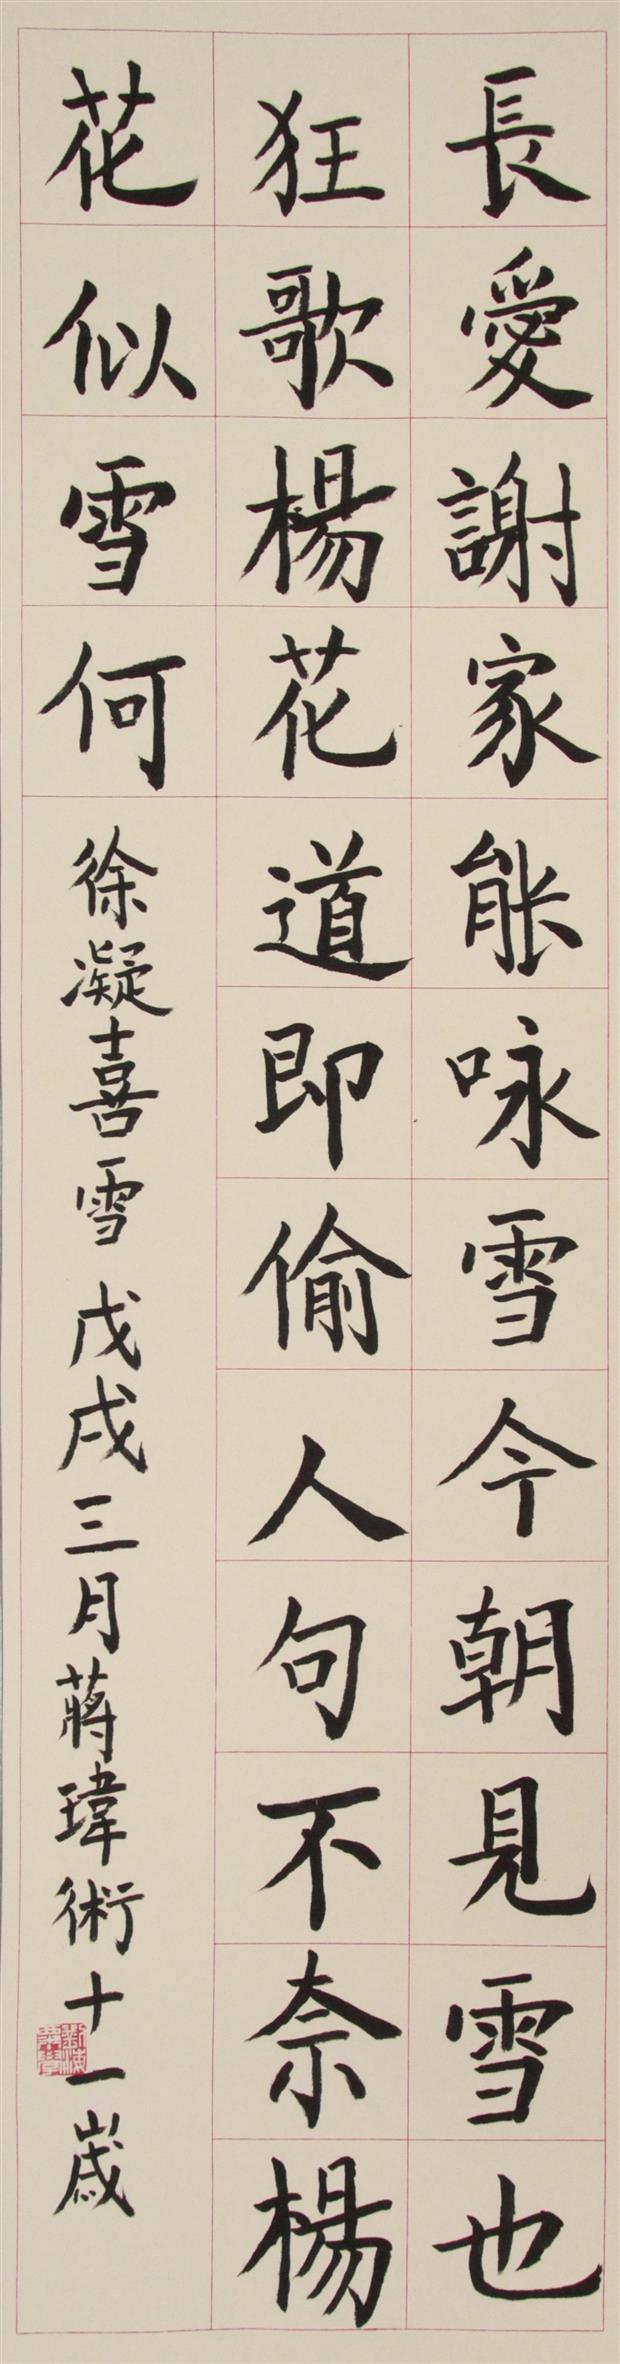 長愛謝家能咏雪今朝見雪也
狂歌楊花道即偷人句不奈楊
花似雪何
徐凝喜雪戊戌三月蔣瑋術十一歲